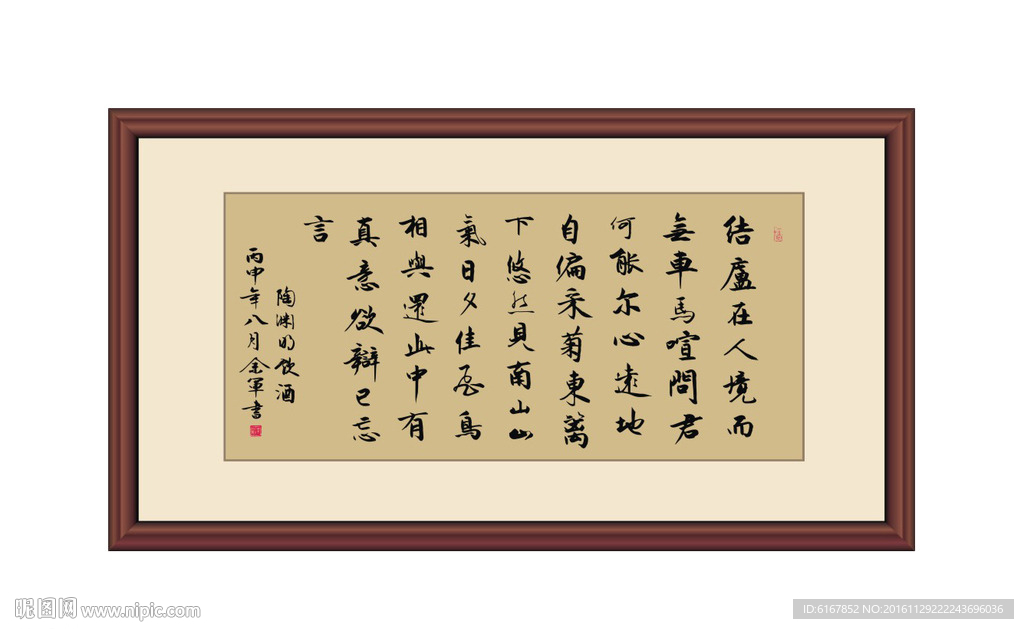 结廬在人境而
無車馬喧問君
何能尔心遠地
自偏采菊東籬
下悠然見南山山
氣日夕佳飛鳥
相與還此中有
真意欲辯已忘
言
陶渊明饮酒
丙申年八月金軍书
昵图网 www.nipic.com
ID:6167852 NO:20161129222243696036